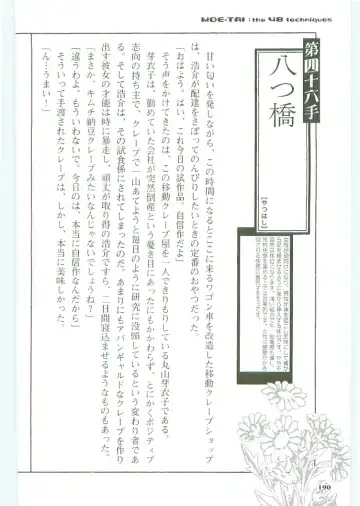 MOE-TAI : the 48 techniques
第四十六手
八つ橋
【やつはし】
甘い匂いを発しながら、この時間になるとここに来るワゴン車を改造した移動クレープショップ
は、浩介が配達をさぼってのんびりしたいときの定番のおやつだった。
「おはよう。はい、これ今日の試作品。自信作だよ」
そう声をかけてきたのは、この移動クレープ屋を一人できりもりしている丸山芽衣子である。
芽衣子は、勤めていた会社が突然倒産という憂き目にあったにもかかわらず、とにかくポジティブ
志向の持ち主で、クレープで一山あてようと毎日のように研究に没頭しているという変わり者であ
る。そして浩介は、その試食係にされてしまったのだ。あまりにもアバンギャルドなクレープを作り
出す彼女の才能は時に暴走し、頑丈が取り得の浩介ですら、二日間寝込ませるようなものもあった。
「まさか、キムチ納豆クレープみたいなんじゃないでしょうね？」
「違うわよ。もういわないで。今日のは、本当に自信作なんだから」
そういって手渡されたクレープは、しかし、本当に美味しかった。
「ん…うまい！」
190